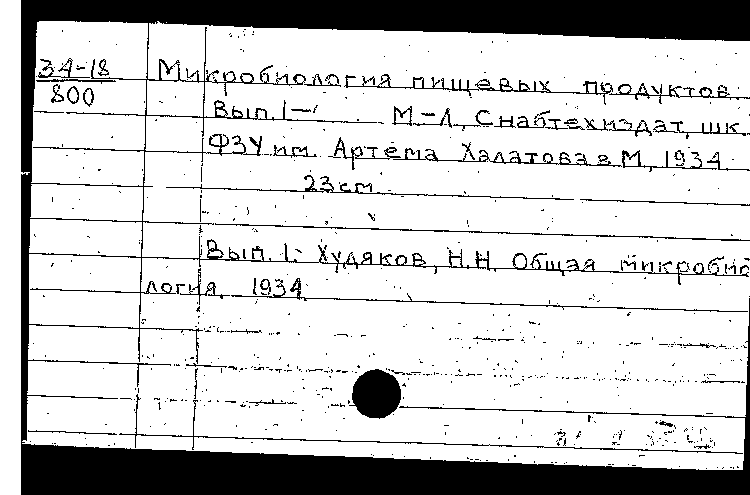 34-18 Микробиология пищевых продуктов.
800
Вып. 1- М-Л, Снабтехиздат, шк.
ФЗУ им. Артёма Халатова в М, 1934.
23 см.
Вып. 1: Худяков, Н.Н. Общая микробио
логия. 1934.